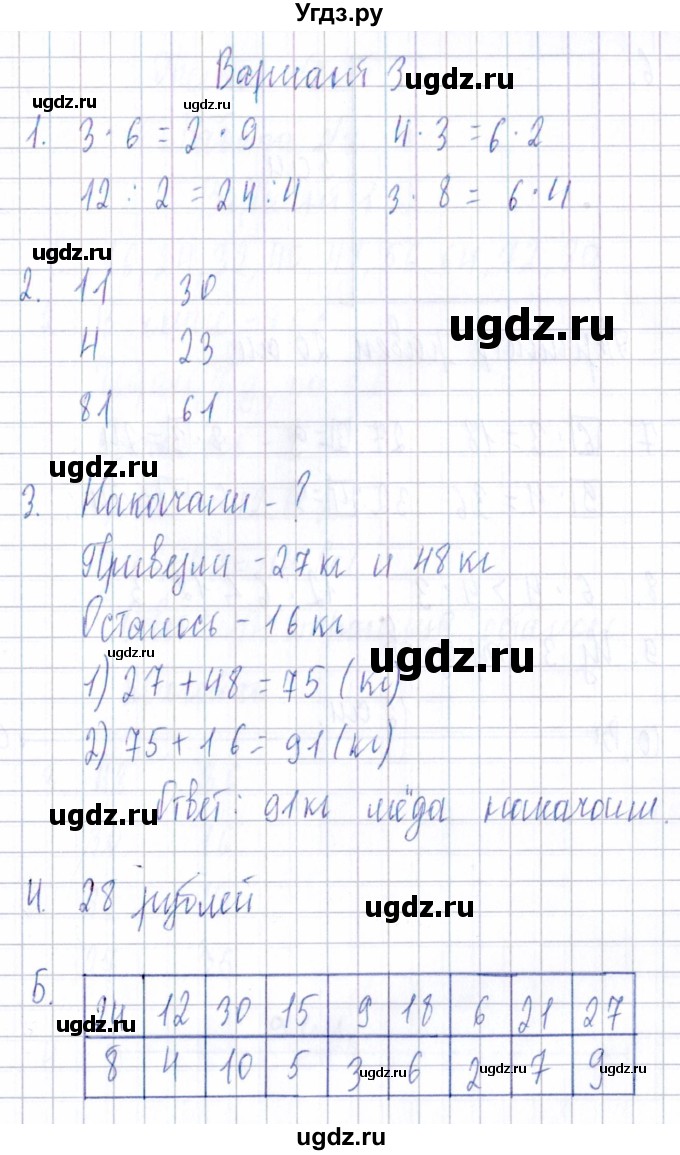 Угдз.ру
Вариант 3
ugdz.ru
ugdz.ru
ugdz.ru
1. 3 · 6 = 2 · 9 4 · 3 = 6 · 2
12 : 2 = 24 : 4 3 · 8 = 6 · 4
ugdz.ru
2. 11 30
ugdz.ru
4 23
81 61
ugdz.ru
3. Накачали - ?
Привезли - 27 кг и 48 кг
Осталось - 16 кг
ugdz.ru
ugdz.ru
1) 27 + 48 = 75 (кг)
2) 75 + 16 = 91 (кг)
ugdz.ru
Ответ: 91 кг мёда накачали.
4. 28 рублей
ugdz.ru
5.
24 12 30 15 9 18 6 21 27
ugdz.ru
8 4 10 5 3 6 2 7 9
ugdz.ru
ugdz.ru
ugdz.ru
ugdz.ru